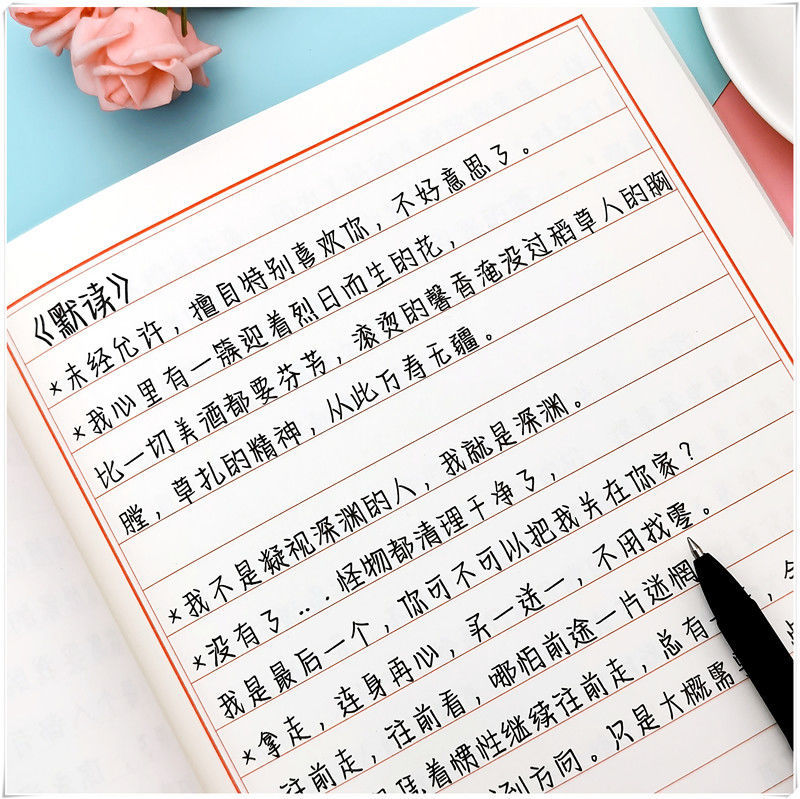 《默读》
*未经允许，擅自特别喜欢你，不好意思了。
*我心里有一簇迎着烈日而生的花，
比一切美酒都要芬芳，滚烫的馨香淹没过稻草人的胸
膛，草扎的精神，从此万寿无疆。
*我不是凝视深渊的人，我就是深渊。
*没有了...怪物都清理干净了，
我是最后一个，你可不可以把我关在你家？
*拿走，连身再心，买一送一，不用找零。
往前走，往前看，哪怕前途一片迷惘
着惯性继续往前走，总有一
到方向。只是大概需